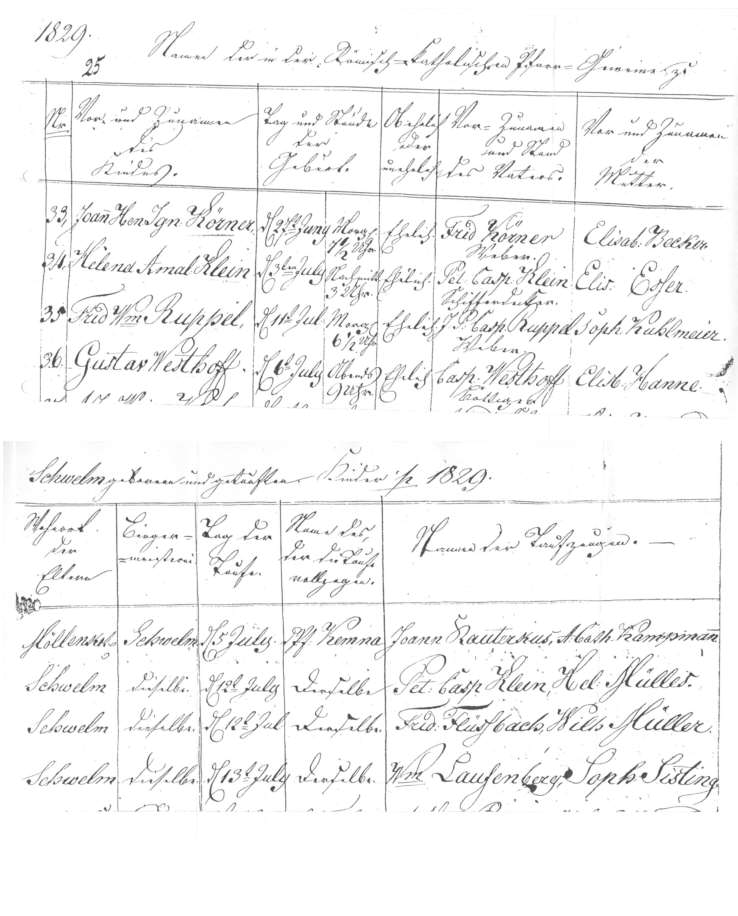 1829.
25
Namen der in der Römisch-Katholischen Pfarr-Gemeine zu
Nr. Vor- und Zunamen des Kindes. Tag und Stunde der Geburt. Ob ehelich oder unehelich Vor- Zunamen und Stand des Vaters. Vor und Zunamen der Mutter.
33, Joañ Hen Ign Körner. d 27t Juny Morg. 7½ Uhr. Ehelich Frid Körner Weber. Elisab. Becker
34, Helena Amal Klein d 3ten July Nachmitt 3 Uhr. Ehelich. Pet. Casp Klein Elis. Esser.
35 Frid Wm Ruppel, d 11t Jul Morg. 6½ Uhr Ehelich Casp Ruppel Weber Soph. Kuhlmeier.
36. Gustav Westhoff. d 6t July Abends 9 Uhr. Ehelich Casp. Westhoff Elisb. Hanne.
Schwelm geborenen und getauften Kinder p 1829.
Wohnort der Eltern Bürger-meisterei Tag der Taufe. Name des, der die Taufe vollzogen. Namen der Taufzeugen. —
Möllenkott Schwelm d 5 July. Kemna Joann Rauterkus, Kampmañ
Schwelm dieselbe. d 12t July Derselbe Pet. Casp Klein, Hel. Müller.
Schwelm dieselbe. d 12t Jul Derselbe. Frid. Flüssbach, Wilh Müller.
Schwelm dieselbe. d 13t July Derselbe. Wm Laufenberg, Soph Sisting.